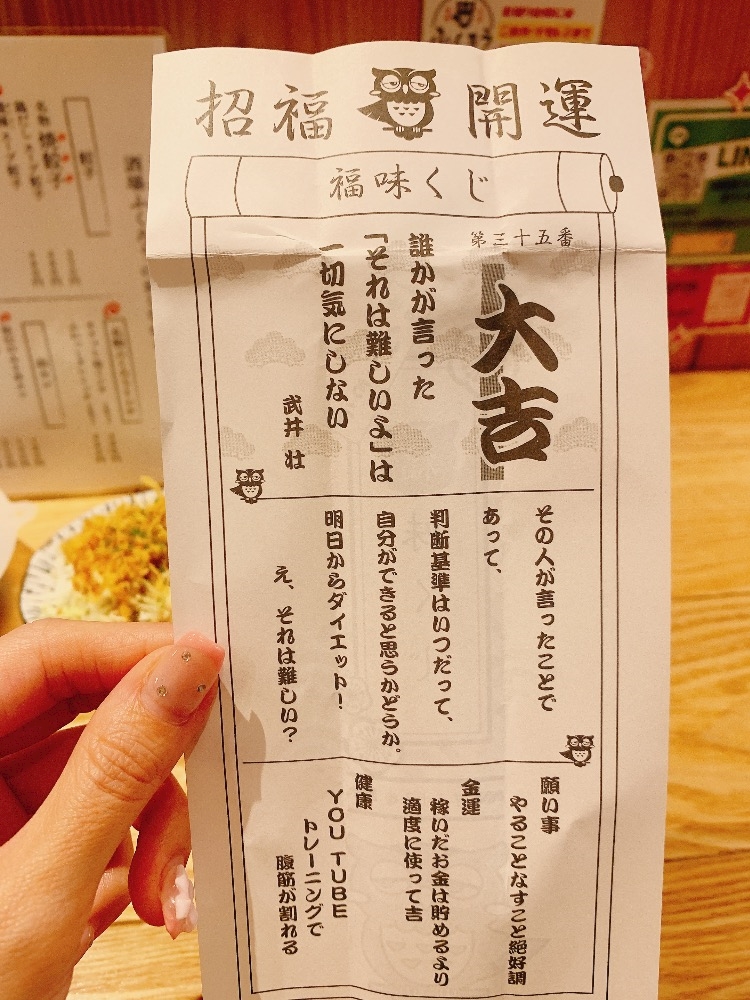 招福 開運
福味くじ
第三十五番
大吉
誰かが言った
「それは難しいよ」は
一切気にしない
武井 壮
その人が言ったことで
あって、
判断基準はいつだって、
自分ができると思うかどうか。
明日からダイエット！
え、それは難しい？
願い事
やることなすこと絶好調
金運
稼いだお金は貯めるより
適度に使って吉
健康
YOU TUBE
トレーニングで
腹筋が割れる
ふくろう
LIN
餃子
名物 焼餃子